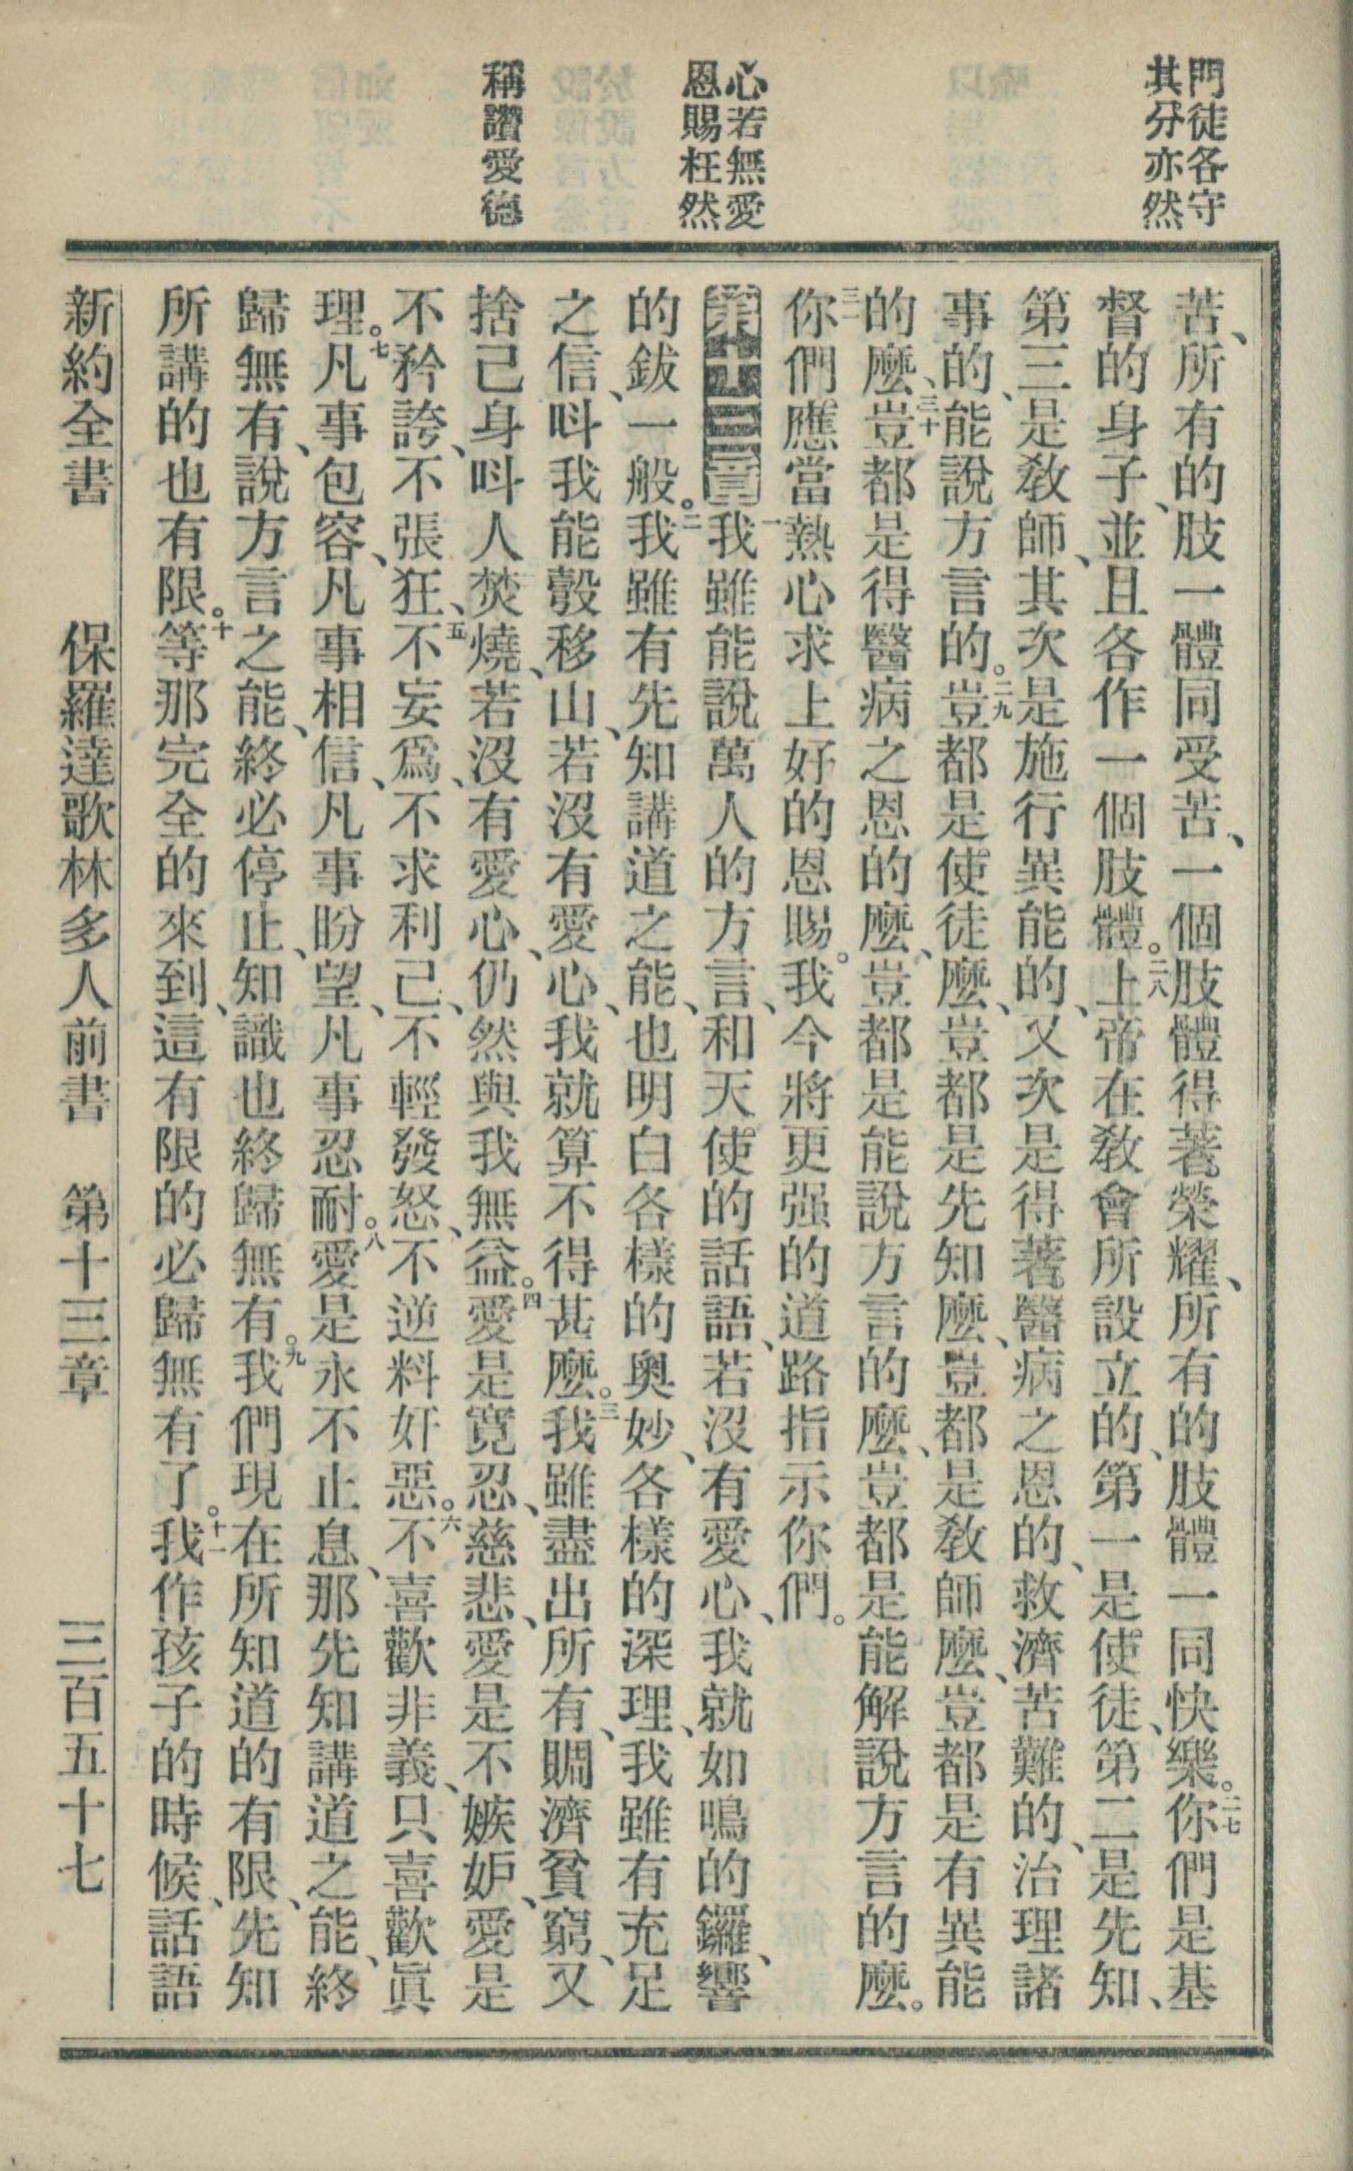 門徒各守
其分亦然
心若無愛
恩賜枉然
稱讚愛德
苦、所有的肢一體同受苦、一個肢體得著榮耀、所有的肢體一同快樂。二七你們是基
督的身子、並且各作一個肢體。二八上帝在敎會所設立的、第一是使徒、第二是先知、
第三是敎師、其次是施行異能的、又次是得著醫病之恩的、救濟苦難的、治理諸
事的、能說方言的。二九豈都是使徒麼、豈都是先知麼、豈都是敎師麼、豈都是有異能
的麼、三十豈都是得醫病之恩的麼、豈都是能說方言的麼、豈都是能解說方言的麼。
三一你們應當熱心求上好的恩賜。我今將更强的道路指示你們。
第十三章一我雖能說萬人的方言、和天使的話語、若沒有愛心、我就如鳴的鑼、響
的鈸一般。二我雖有先知講道之能、也明白各樣的奥妙、各樣的深理、我雖有充足
之信、呌我能彀移山、若沒有愛心、我就算不得甚麼。三我雖盡出所有、賙濟貧窮、又
捨己身呌人焚燒、若沒有愛心、仍然與我無益。四愛是寬忍、慈悲、愛是不嫉妒、愛是
不矜誇、不張狂、五不妄爲、不求利己、不輕發怒、不逆料奸惡。六不喜歡非義、只喜歡眞
理。七凡事包容、凡事相信、凡事盼望、凡事忍耐。八愛是永不止息、那先知講道之能、終
歸無有、說方言之能、終必停止、知識也終歸無有。九我們現在所知道的有限、先知
所講的也有限。十等那完全的來到、這有限的必歸無有了。十一我作孩子的時候、話語
新約全書　保羅達歌林多人前書　第十三章　三百五十七